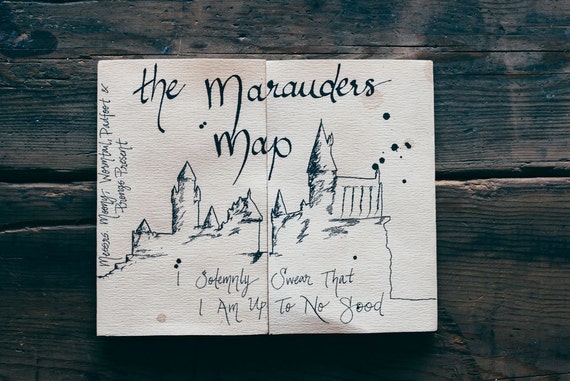 the Marauders
Map
Messrs. Moony, Wormtail, Padfoot &
Prongs Present
I Solemnly Swear That
I Am Up To No Good